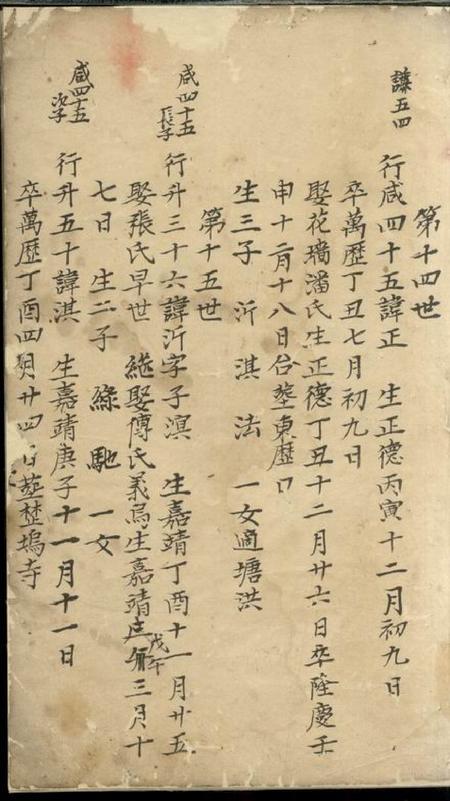 第十四世
謙五四
行咸四十五諱正 生正德丙寅十二月初九日
卒萬歷丁丑七月初九日
娶花墻潘氏生正德丁丑十二月廿六日卒隆慶壬
申十二月十八日合塟東歷口
生三子 沂 淇 法 一女適塘洪
第十五世
咸四十五
長子
行升三十六諱沂字子溟 生嘉靖丁酉十一月廿五
娶張氏早世 継娶傅氏義烏生嘉靖戊午三月十
七日 生二子 綠 馳 一女
咸四十五
次子
行升五十諱淇 生嘉靖庚子十一月十一日
卒萬歷丁酉四月廿四日塟塢寺